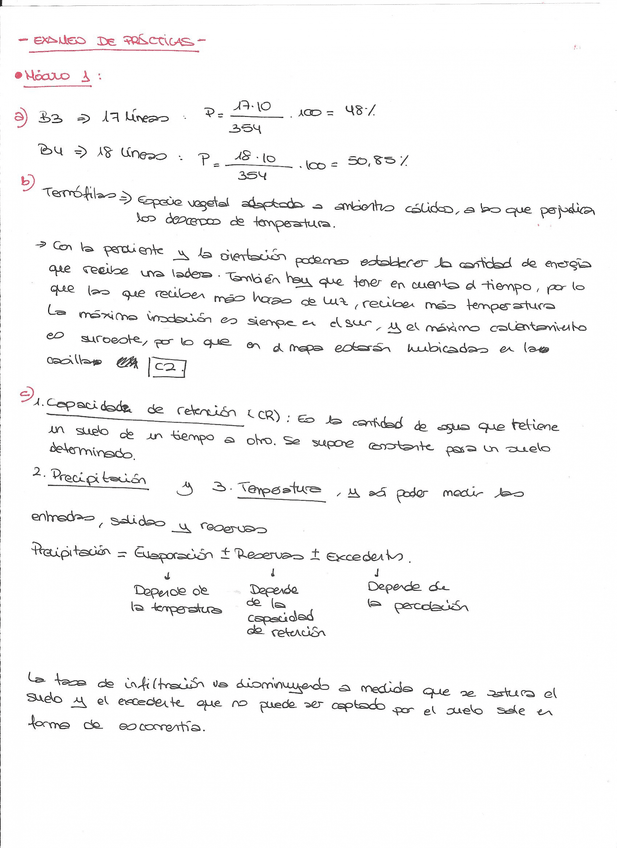 - EXAMEN DE PRÁCTICAS -
• Módulo 1 :
a) B3 ⇒ 17 líneas : P = 17·10 / 354 · 100 = 48 %
B4 ⇒ 18 líneas : P = 18·10 / 354 · 100 = 50,85 %
b)
Termófilas ⇒ Especie vegetal adaptada a ambientes cálidos, a los que perjudica
los descensos de temperatura.
→ Con la pendiente y la orientación podemos establecer la cantidad de energía
que recibe una ladera. También hay que tener en cuenta el tiempo, por lo
que las que reciben más horas de luz, reciben más temperatura
La máxima insolación es siempre en el sur, y el máximo calentamiento
es suroeste, por lo que en el mapa estarán hubicadas en las
casillas C2
c) 1. Capacidad de retención (CR) : Es la cantidad de agua que retiene
un suelo de un tiempo a otro. Se supone constante para un suelo
determinado.
2. Precipitación y 3. Temperatura, y así poder medir las
entradas, salidas y reservas
Precipitación = Evaporación ± Reservas ± Excedents.
↓ ↓ ↓
Depende de Depende Depende de
la temperatura de la la percolación
capacidad
de retención
La tasa de infiltración va disminuyendo a medida que se satura el
suelo y el excedente que no puede ser captado por el suelo sale en
forma de escorrentía.